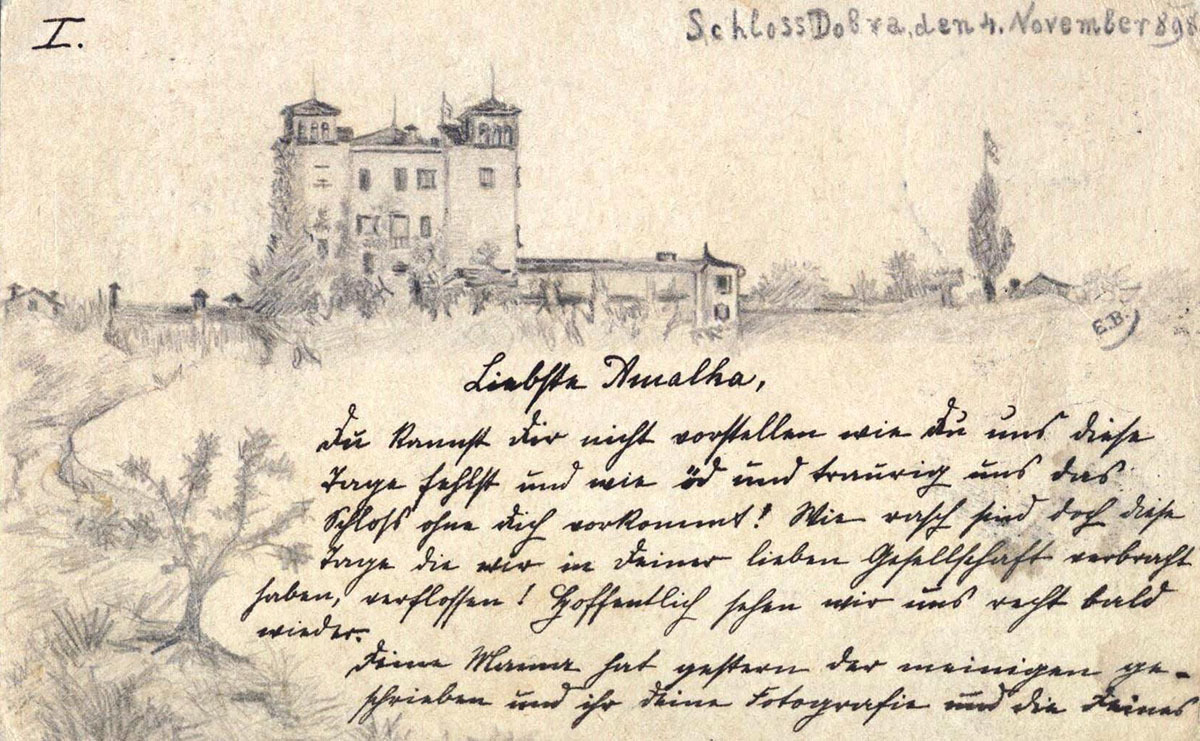 I.
Schloss Dobra, den 4. November 898
E.B.
Liebste Amalka,
Du kannst Dir nicht vorstellen wie Du uns diese
Tage fehlst und wie öd und traurig uns das
Schloß ohne Dich vorkommt! Wie rasch sind doch diese
Tage die wir in Deiner lieben Gesellschaft verbracht
haben, verflossen! Hoffentlich sehen wir uns recht bald
wieder.
Deine Mama hat gestern der meinigen ge-
schrieben und ihr Deine Fotografie und die Deines